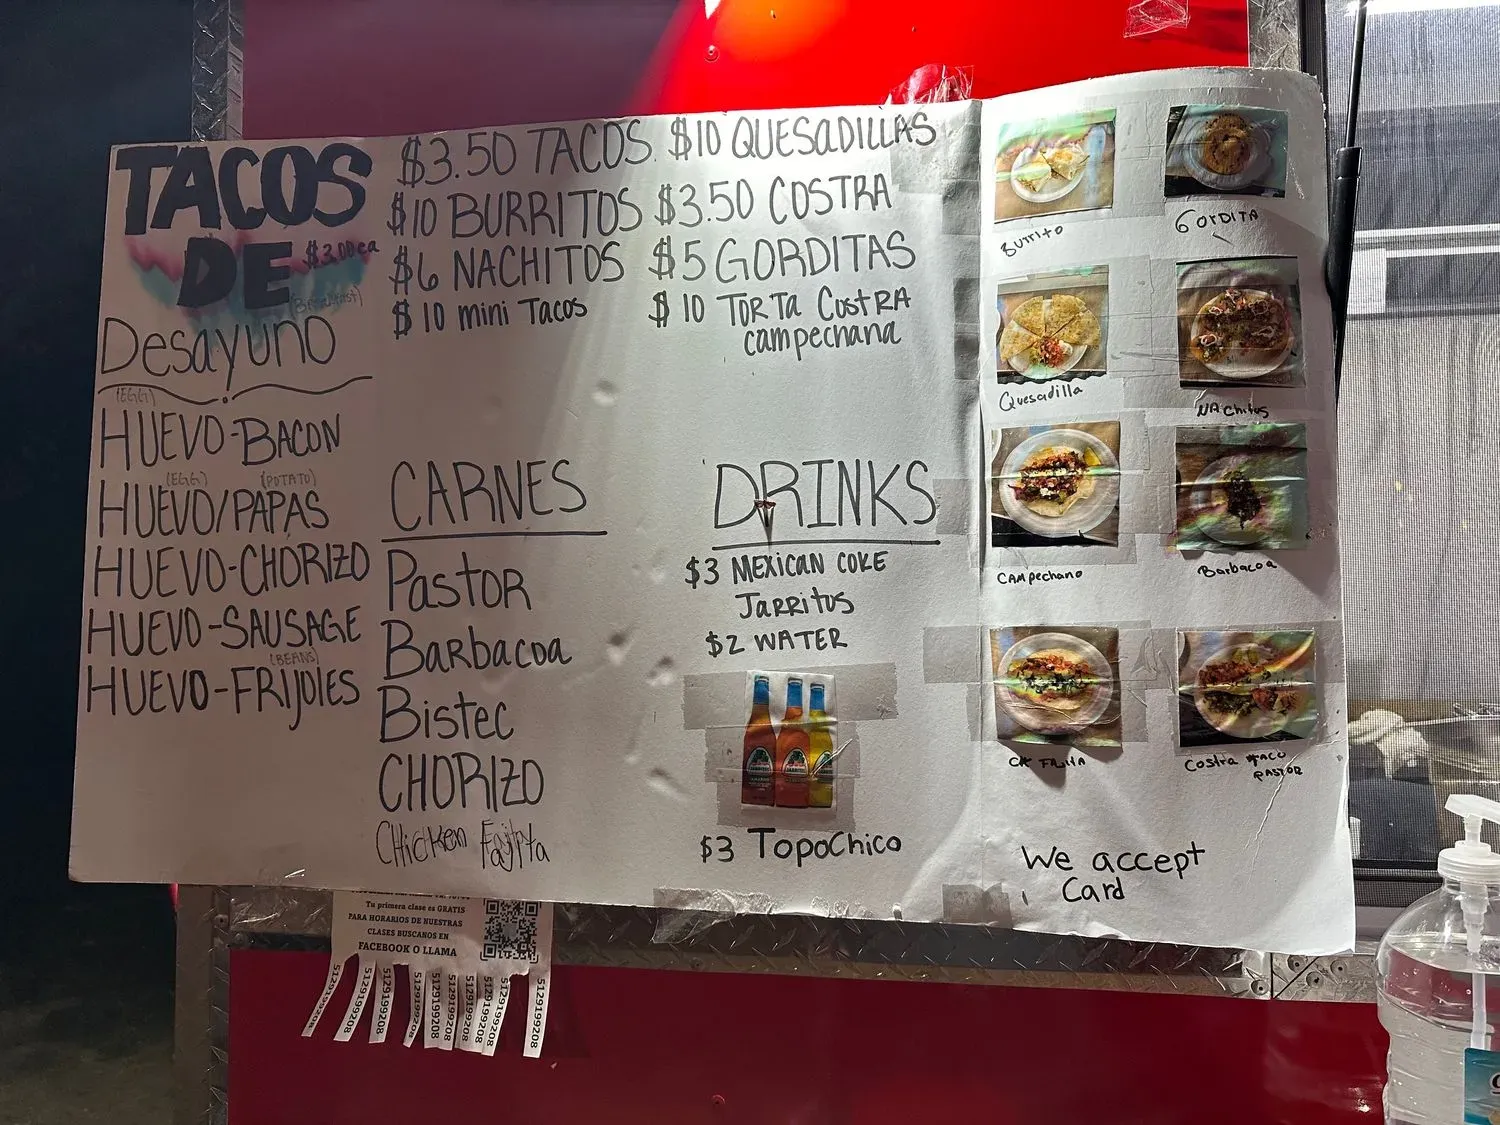 TACOS
DE $3.00 ea
(Breakfast)
Desayuno
(EGG)
HUEVO-BACON
(EGG) (POTATO)
HUEVO/PAPAS
HUEVO-CHORIZO
HUEVO-SAUSAGE
(BEANS)
HUEVO-FRIJOLES
$3.50 TACOS
$10 BURRITOS
$6 NACHITOS
$10 mini Tacos
$10 QUESADILLAS
$3.50 COSTRA
$5 GORDITAS
$10 TORTA COSTRA
campechana
CARNES
Pastor
Barbacoa
Bistec
CHORIZO
CHicken Fajita
DRINKS
$3 MEXICAN COKE
JARRITOS
$2 WATER
$3 TopoChico
Burrito
GORDITA
Quesadilla
NAchitos
CAMpechano
Barbacoa
FAJITA
Costra TACO
PASTOR
We accept
Card
Tu primera clase es GRATIS
PARA HORARIOS DE NUESTRAS
CLASES BUSCANOS EN
FACEBOOK O LLAMA
5129199208
5129199208
5129199208
5129199208
5129199208
5129199208
5129199208
5129199208
5129199208